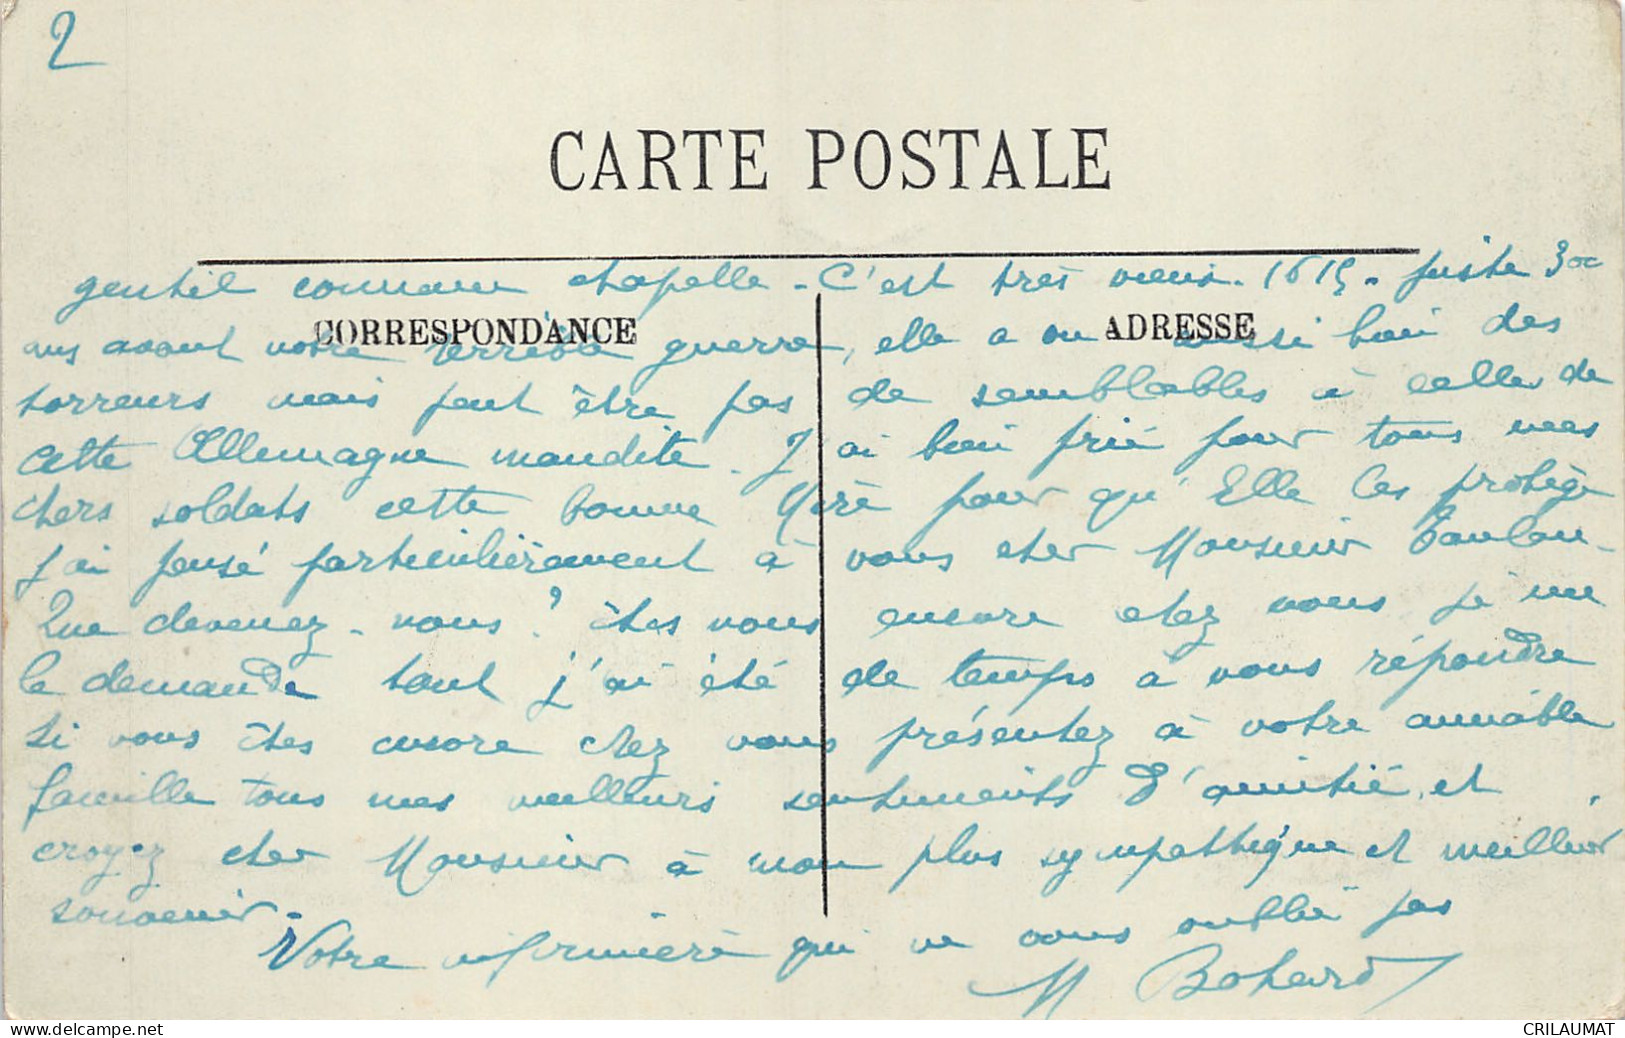 2
CARTE POSTALE
gentil comme chapelle - C'est très vieux. 1615 - juste 300
CORRESPONDANCE
ADRESSE
ans avant notre terrible guerre, elle a vu aussi bien des
horreurs mais peut être pas de semblables à celle de
cette Allemagne maudite. J'ai bien prié pour tous mes
chers soldats cette bonne Mère pour qu'Elle les protège
j'ai pensé particulièrement à vous cher Monsieur
Que devenez-vous? êtes vous encore chez vous je me
le demande tant j'ai été de temps à vous répondre
si vous êtes encore chez vous présentez à votre aimable
famille tous mes meilleurs sentiments d'amitié, et
croyez cher Monsieur à mon plus sympathique et meilleur
souvenir.
Votre infirmière qui ne vous oublie pas
M Bohard
CRILAUMAT
www.delcampe.net